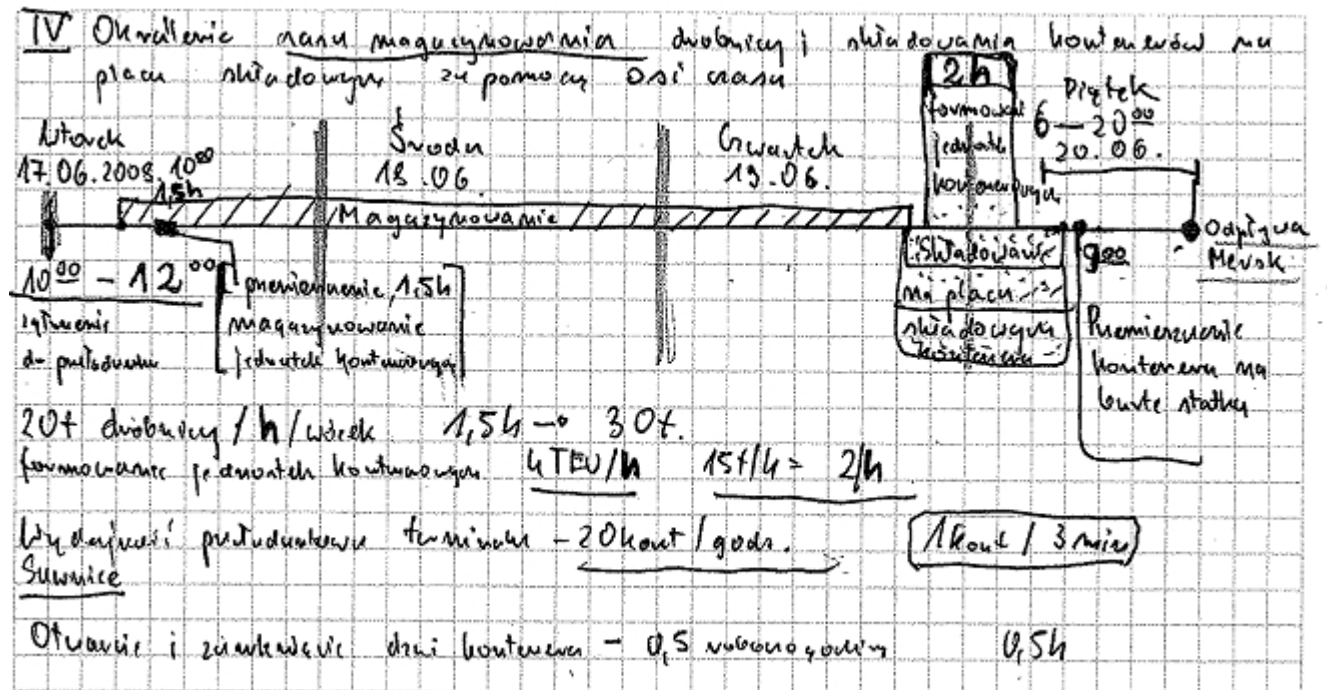 IV Określenie czasu magazynowania drobnicy i składowania kontenerów na
placu składowym za pomocą osi czasu
2h
formowanie
jednostek
kontenerowych
Piątek
6 – 20 00
20.06.
Wtorek
17.06.2008. 10 00
1,5h
Środa
18.06.
Czwartek
19.06.
Magazynowanie
Odpływa
Mersk
10 00 – 12 00
zgłoszenie
do przeładunku
przemieszczenie, 1,5h
magazynowanie
jednostek kontenerowych
Składowanie
na placu
składowym
kontenera
9 00
Przemieszczenie
kontenera na
burtę statku
20t drobnicy / h / wózek 1,5h → 30t.
formowanie jednostek kontenerowych 4 TEU/h 15t/h = 2/h
Wydajność przeładunkowa terminalu – 20 kont / godz. 1 kont / 3 min
Suwnice
Otwarcie i zamknięcie drzwi kontenera – 0,5 roboczogodziny 0,5h